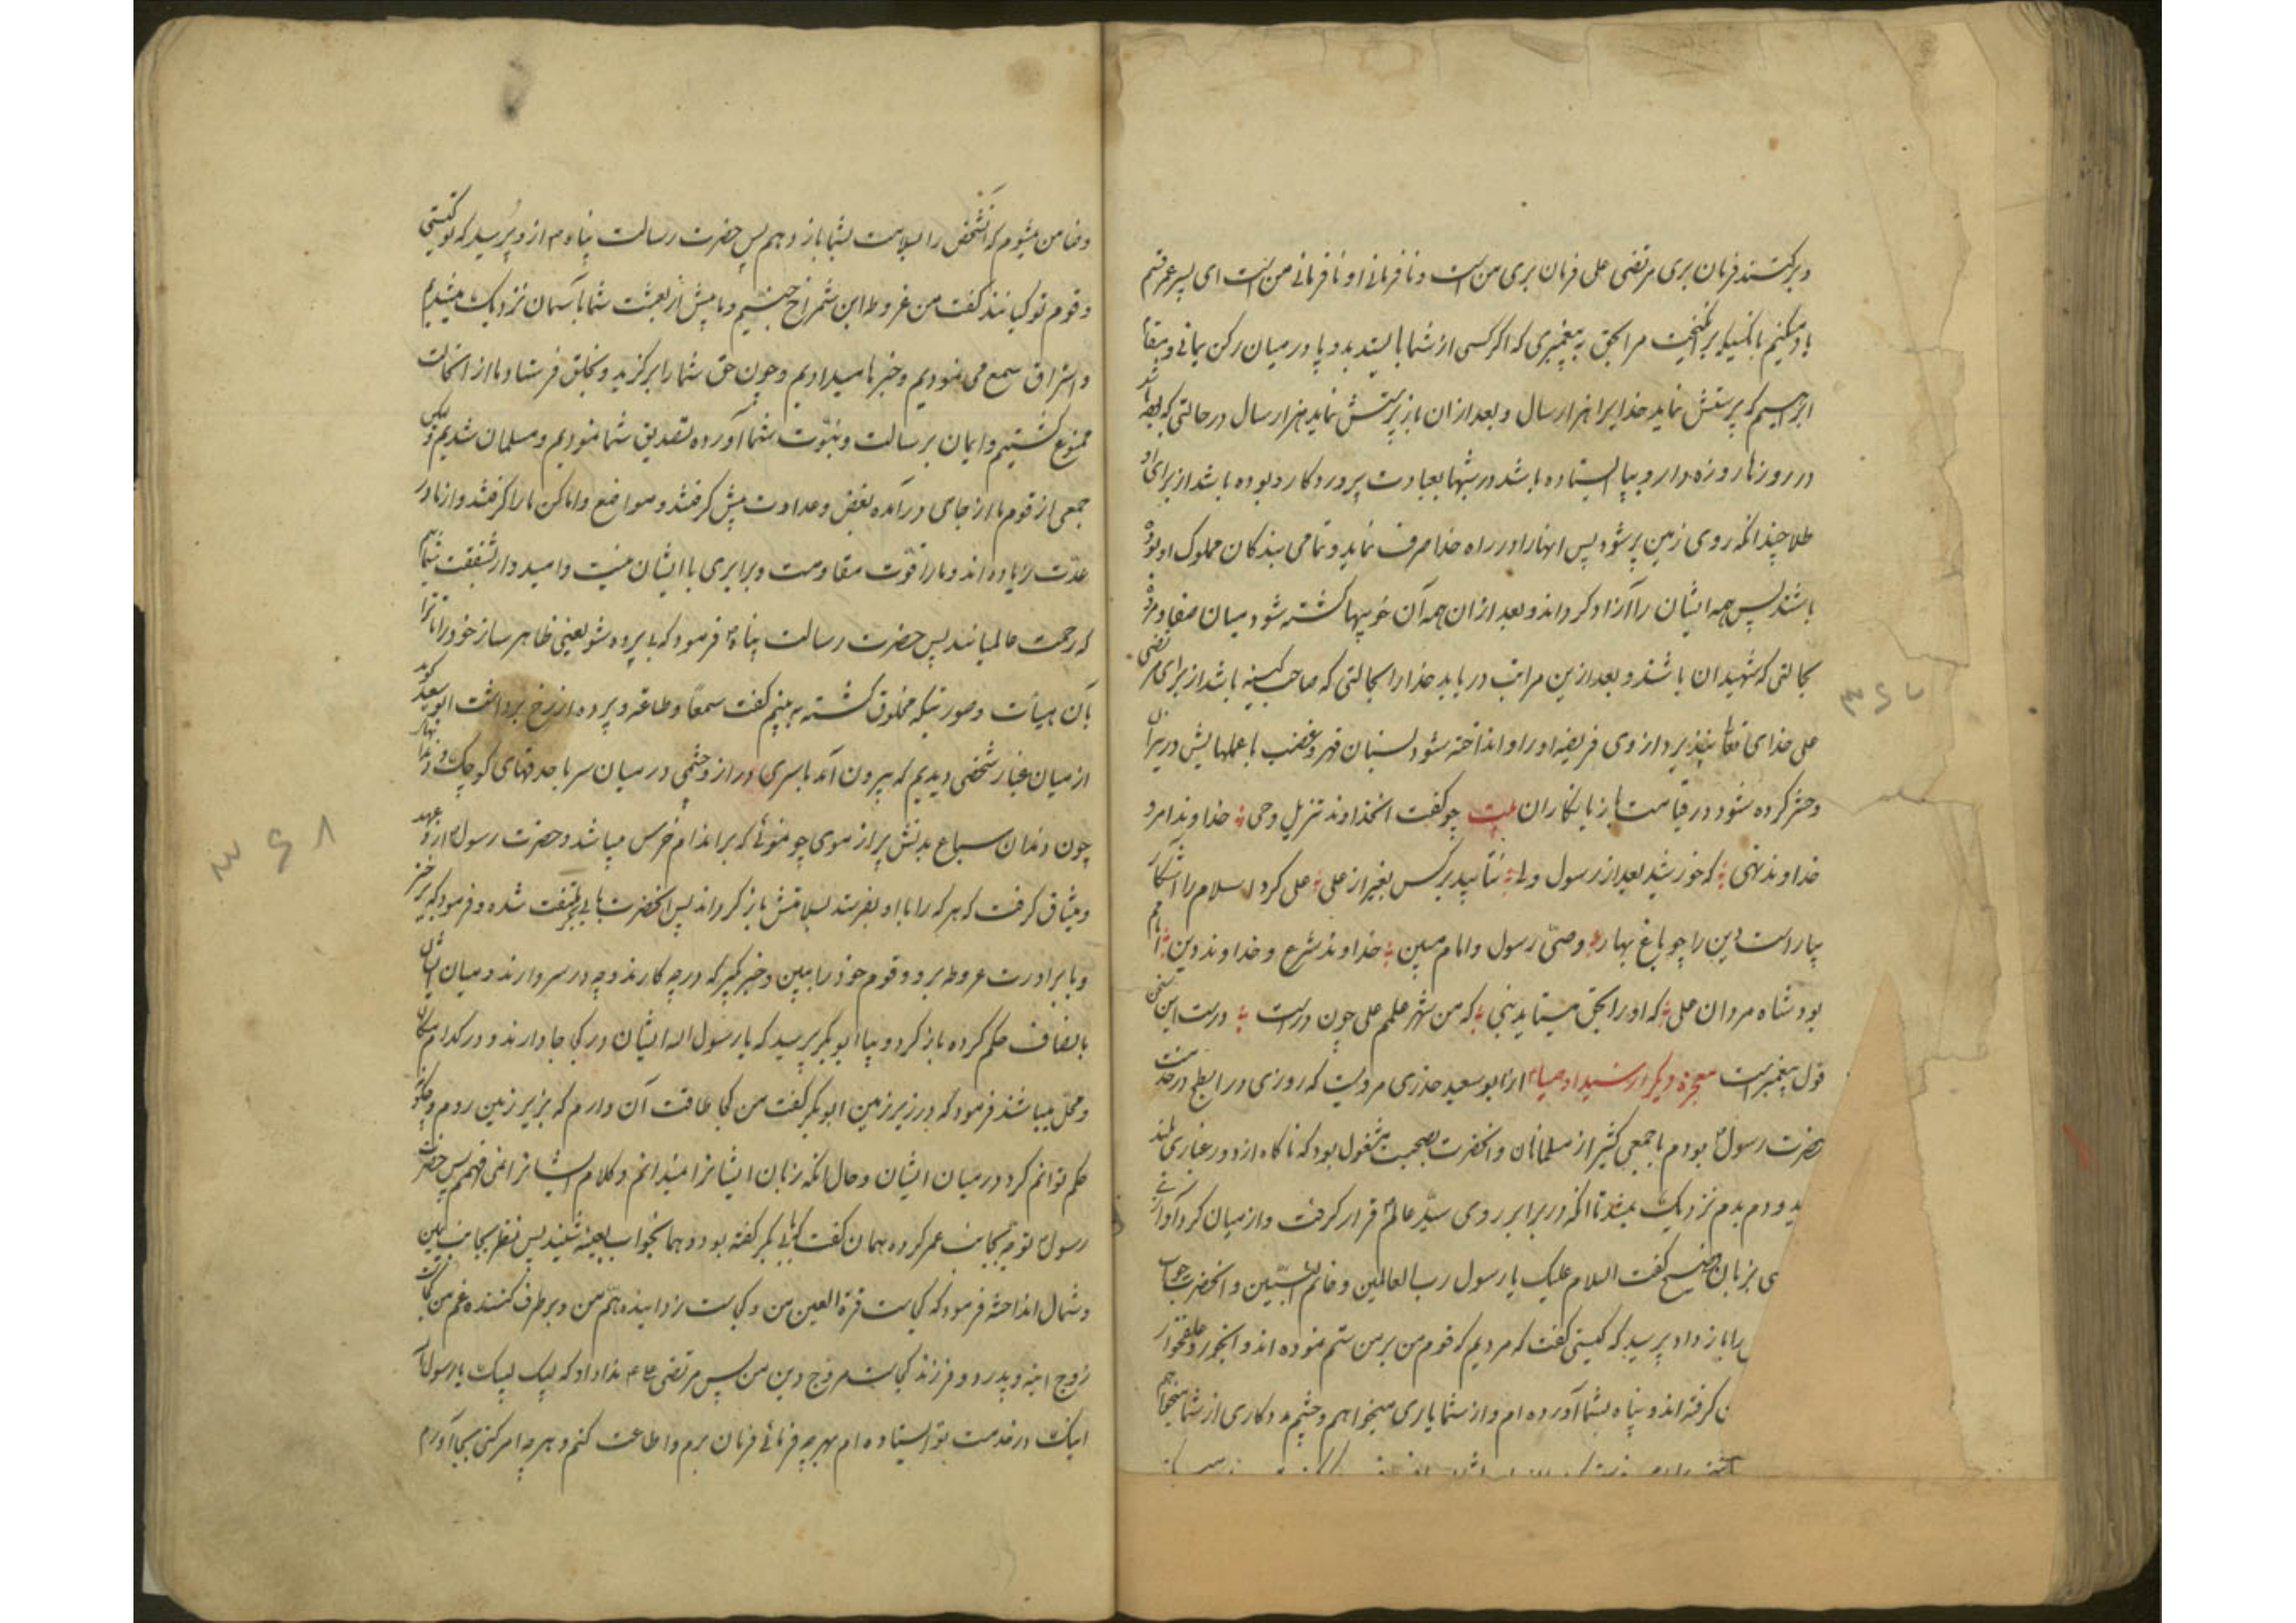 و برکتسند فرمان بری مرتضی علی فرمان بری من است و نافرمانی او نافرمانی من است ای پسر عم قسم
یاد میکنم بانکسیکه برانکیخت مرا بحق به پیغمبری که اکر کسی از شما بایستد بدو پا در میان رکن یمانی و مقام
ابراهیم که پرستش نماید خدایرا هزار سال و بعد از ان باز پرستش نماید هزار سال در حالتی که بوده باشد
در روزها روزه دار و بپا ایستاده باشد در شبها بعبادت پروردکار و بوده باشد از برای او
طلا چندانکه روی زمین پر شود پس انها را در راه خدا صرف نماید و تمامی بندکان مملوک او بوده
باشند پس همه ایشان را آزاد کرداند و بعد از ان همه آن خوبیها کشته شود میان صفا و مروه
بحالتی که شهیدان باشند و بعد ازین مراتب دریابد خدا را بحالتی که صاحب کینه باشد از برای مرتضی
علی خدای تعالی نپذیرد از وی فریضه او را و انداخته شود بسنان قهر و غضب با عملهایش در نیران
و حشر کرده شود در قیامت با زیانکاران بیت چو کفت انخداوند تنزیل وحی خداوند امر و
خداوند نهی که خورشید بعد از رسول ولی نتابید بر کس بغیر از علی علی کرد اسلام را اشکار
بیاراست دین را چو باغ بهار وصی رسول و امام مبین خداوند شرع و خداوند دین امام
بود شاه مردان علی که او را بحق میستاید نبی که من شهر علمم علی چون درست درست این سخن
قول پیغمبرست معجزه دیکر از سید اوصیا از ابو سعید خذری مرویست که روزی در ابطح در خدمت
حضرت رسول بودم با جمعی کثیر از مسلمانان و انحضرت بصحبت مشغول بود که ناکاه از دور غباری بلند
ید و دم بدم نزدیک میشد تا انکه در برابر روی سید عالم قرار کرفت و از میان کرد آوازی
ی بزبان فصیح کفت السلام علیک یا رسول رب العالمین و خاتم النبیین و انحضرت جواب
را باز داد پرسید که کیستی کفت که مردیم که قوم من بر من ستم نموده اند و
کرفته اند و پناه بشما آورده ام و از شما یاری میخواهم و چشم مددکاری از شما میخواهم
۳۶۷
و ضامن میشوم که انشخص را بسلامت بشما باز دهم پس حضرت رسالت پناه از و پرسید که تو کیستی
و قوم تو کیانند کفت من غروطه ابن شمراخ جنیم و ما پیش از بعثت شما بآسمان نزدیک میشدیم
و استراق سمع می نمودیم و خبرها میدادیم و چون حق شما را برکزید و بخلق فرستاد ما از انحالت
ممنوع کشتیم و ایمان برسالت و نبوت شما آورده تصدیق شما نمودیم و مسلمان شدیم و لیکن
جمعی از قوم ما از جای درآمده بغض و عداوت پیش کرفتند و مواضع و اماکن ما را کرفتند و از ما در
عدت زیاده اند و ما را قوت مقاومت و برابری با ایشان نیست و امیدوار شفقت شمائیم
که رحمت عالمیانند پس حضرت رسالت پناه فرمود که بی پرده شو یعنی ظاهر ساز خود را تا ترا
بآن هیأت و صورتیکه مخلوق کشته به بینیم کفت سمعا و طاعة و پرده از رخ برداشت ابو سعید کوید
از میان غبار شخصی دیدیم که بیرون آمد با سری دراز و چشمی در میان سر با حدقهای کوچک و دندانها
چون دندان سباع بدنش پر از موی چو موئی که بر اندام خرس میباشد و حضرت رسول از و عهد
و میثاق کرفت که هر که را با او بفرستد بسلامتش باز کرداند پس انحضرت بابی بکر ملتفت شده و فرمود که برخیز
و با برادرت غروطه برو و قوم خود را ببین و خبر کیر که در چه کارند و چه در سر دارند و میان ایشان
بانصاف حکم کرده باز کرد و بیا ابو بکر پرسید که یا رسول الله ایشان در کجا جا دارند و در کدام مکان
و محل میباشند فرمود که در زیر زمین ابو بکر کفت من کجا طاقت آن دارم که بزیر زمین روم و چکونه
حکم توانم کرد در میان ایشان و حال انکه زبان ایشانرا نمیدانم و کلام ایشانرا نمی فهمم پس حضرت
رسول توجه بجانب عمر کرده همان کفت که بابی بکر کفته بود و همان جواب بعینه شنید پس نظر بجانب یمین
و شمال انداخته فرمود که کجاست قرة العین من و کجاست زداینده هم من و برطرف کننده غم من کجاست
زوج ابنه و پدر دو فرزند کجاست مروج دین من پس مرتضی علی ندا داد که لبیک لبیک یا رسول الله
اینک در خدمت تو ایستاده ام بهرچه فرمائی فرمان برم و اطاعت کنم و هرچه امر کنی بجا آورم
۳۶۸